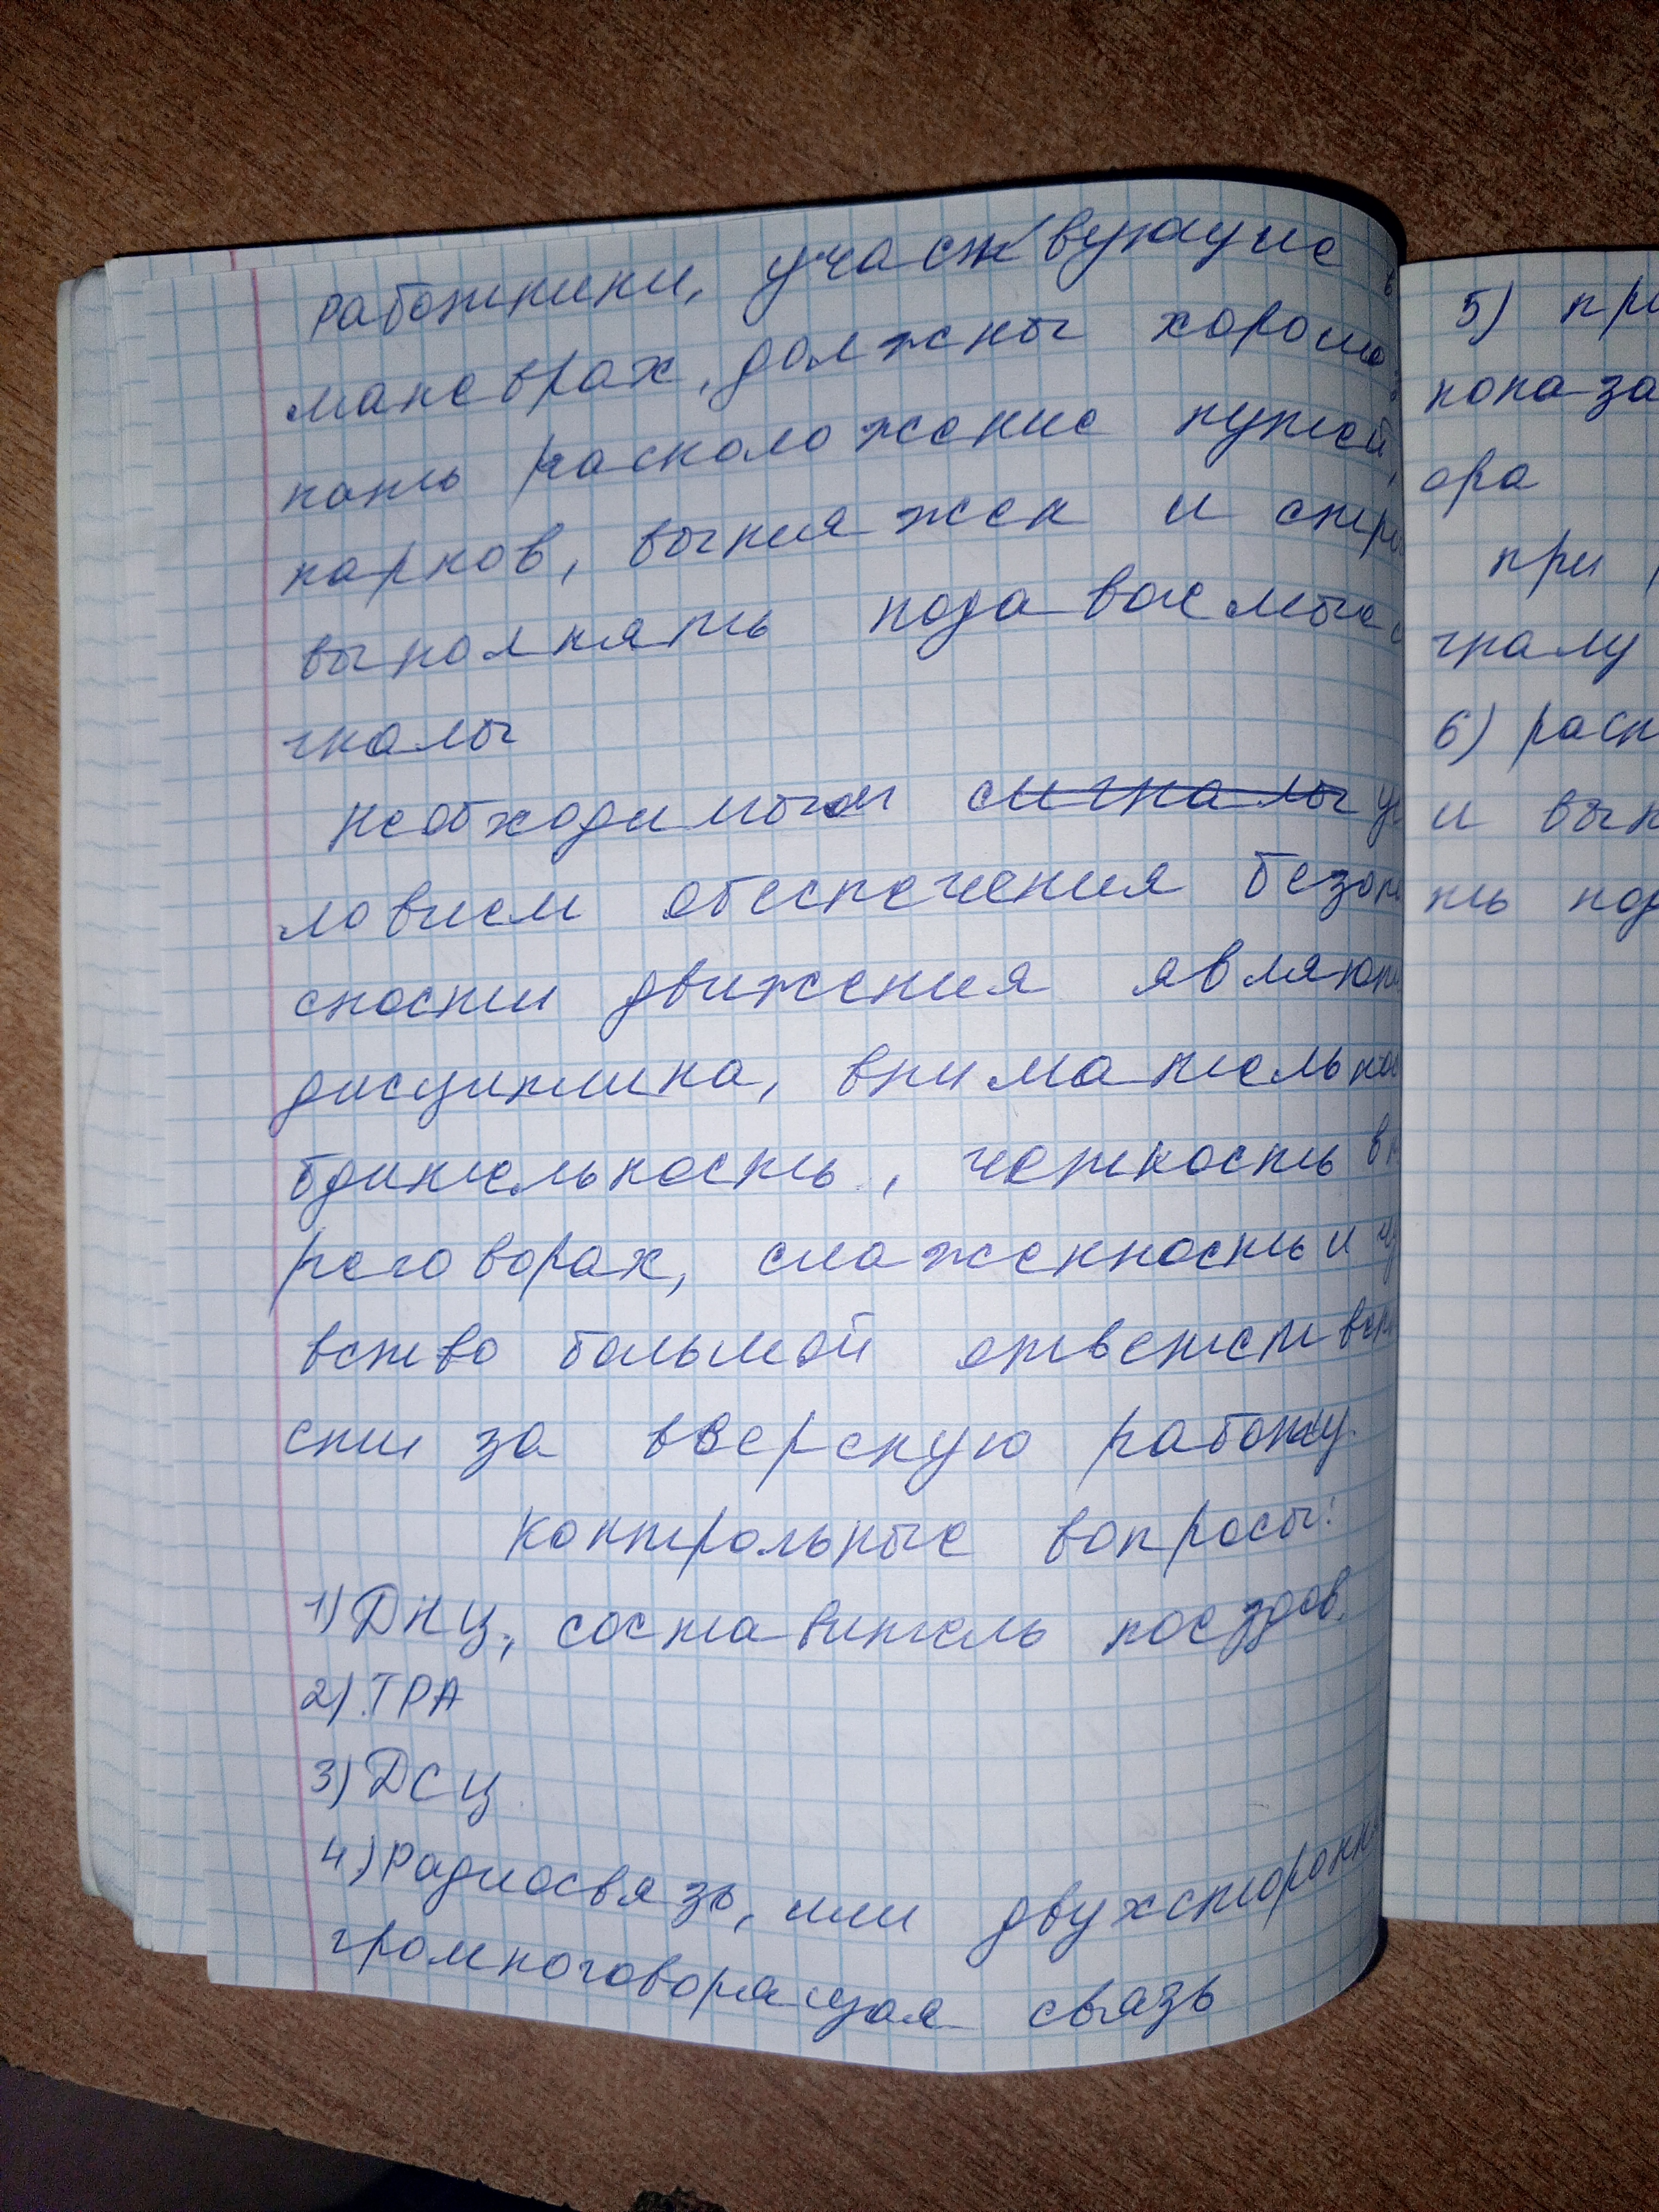 Работники, участвующие в
маневрах, должны хорошо
нать расположение путей,
парков, вытяжек и стро
выполнять подаваемые с
гналы
Необходимым сигналы ус
ловием обеспечения безопа
сности движения являют
дисциплина, внимательнос
бдительность, четкость в п
реговорах, слаженность и чу
вство большой ответствен
сти за вверскую работу.
Контрольные вопросы:
1) ДНЦ, составитель поездов.
2) ТРА
3) ДСЦ
4) Радиосвязь, или двухсторонн
громкоговорящая связь
5) при
пока за
ора
при
гналу
6) расп
и вып
ть под